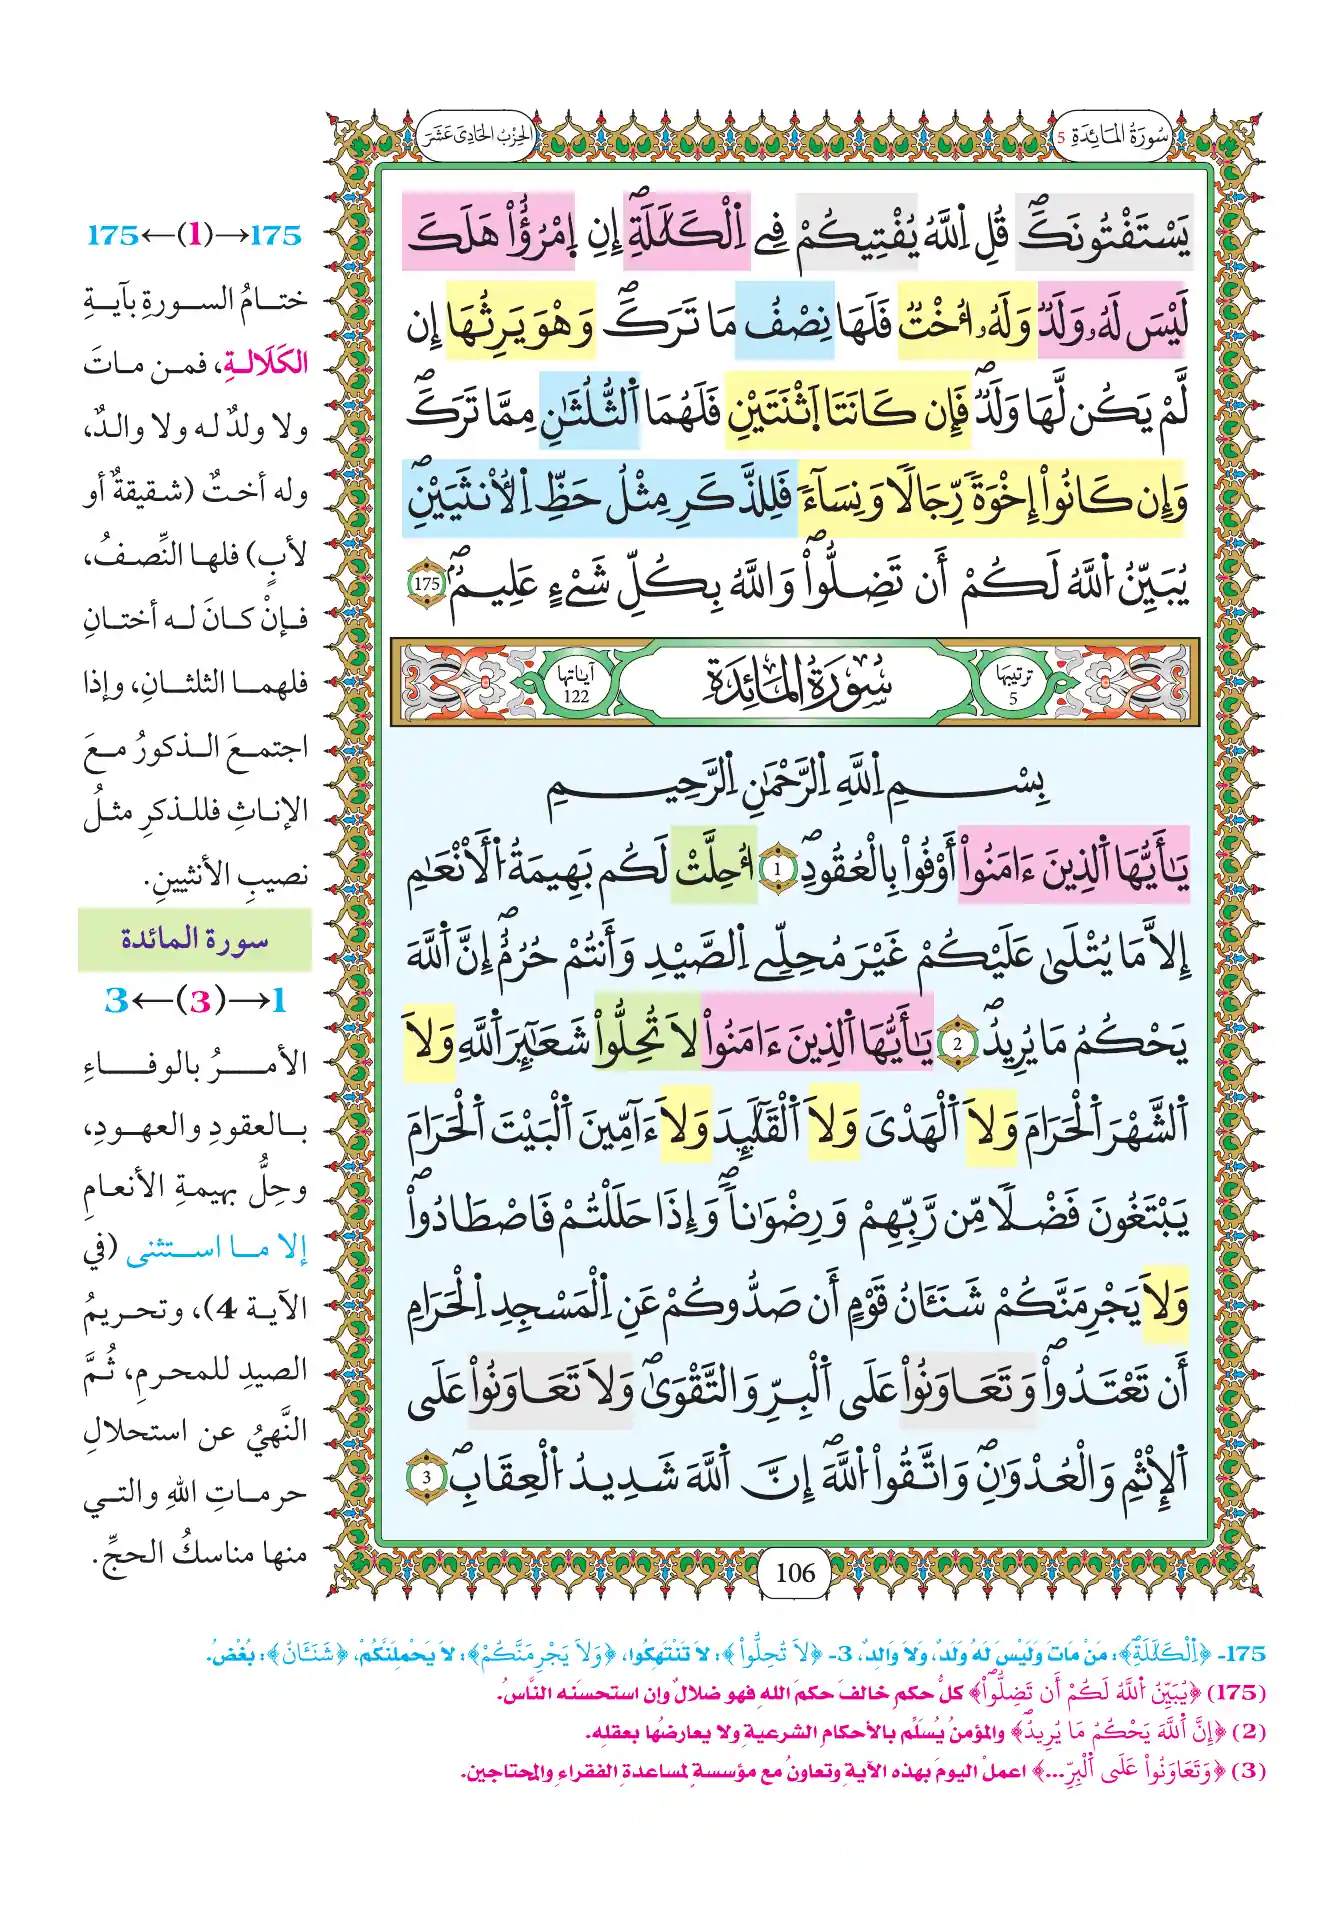 سُورَةُ المَائِدَةِ 5
الحِزْبُ الحَادِي عَشَرَ
يَسْتَفْتُونَكَۖ قُلِ اِ۬للَّهُ يُفْتِيكُمْ فِے اِ۬لْكَلَٰلَةِۖ إِنِ اِ۪مْرُؤٌاْ هَلَكَ
لَيْسَ لَهُۥ وَلَدٞ وَلَهُۥٓ أُخْتٞ فَلَهَا نِصْفُ مَا تَرَكَۖ وَهُوَ يَرِثُهَآ إِن
لَّمْ يَكُن لَّهَا وَلَدٞۖ فَإِن كَانَتَا اَ۪ثْنَتَيْنِ فَلَهُمَا اَ۬لثُّلُثَٰنِ مِمَّا تَرَكَۖ
وَإِن كَانُوٓاْ إِخْوَةٗ رِّجَالٗا وَنِسَآءٗ فَلِلذَّكَرِ مِثْلُ حَظِّ اِ۬لْأُنثَيَيْنِۖ
يُبَيِّنُ اُ۬للَّهُ لَكُمْ أَن تَضِلُّواْۖ وَاللَّهُ بِكُلِّ شَےْءٍ عَلِيمٞۖ 175
ترتيبها 5
سُورَةُ المَائِدَةِ
آياتها 122
بِسْمِ اِ۬للَّهِ اِ۬لرَّحْمَٰنِ اِ۬لرَّحِيمِ
يَٰٓأَيُّهَا اَ۬لذِينَ ءَامَنُوٓاْ أَوْفُواْ بِالْعُقُودِۖ 1 أُحِلَّتْ لَكُم بَهِيمَةُ اُ۬لْأَنْعَٰمِ
إِلَّا مَا يُتْلَىٰ عَلَيْكُمْ غَيْرَ مُحِلِّے اِ۬لصَّيْدِ وَأَنتُمْ حُرُمٌۖ إِنَّ اَ۬للَّهَ
يَحْكُمُ مَا يُرِيدُۖ 2 يَٰٓأَيُّهَا اَ۬لذِينَ ءَامَنُواْ لَا تُحِلُّواْ شَعَٰٓئِرَ اَ۬للَّهِ وَلَا
اَ۬لشَّهْرَ اَ۬لْحَرَامَ وَلَا اَ۬لْهَدْيَ وَلَا اَ۬لْقَلَٰٓئِدَ وَلَآ ءَآمِّينَ اَ۬لْبَيْتَ اَ۬لْحَرَامَ
يَبْتَغُونَ فَضْلٗا مِّن رَّبِّهِمْ وَرِضْوَٰناٗۖ وَإِذَا حَلَلْتُمْ فَاصْطَادُواْۖ
وَلَا يَجْرِمَنَّكُمْ شَنَـَٔانُ قَوْمٍ أَن صَدُّوكُمْ عَنِ اِ۬لْمَسْجِدِ اِ۬لْحَرَامِ
أَن تَعْتَدُواْۖ وَتَعَاوَنُواْ عَلَى اَ۬لْبِرِّ وَالتَّقْوَىٰۖ وَلَا تَعَاوَنُواْ عَلَى
اَ۬لْإِثْمِ وَالْعُدْوَٰنِۖ وَاتَّقُواْ اُ۬للَّهَۖ إِنَّ اَ۬للَّهَ شَدِيدُ اُ۬لْعِقَابِۖ 3
106
175←(1)→175
ختـامُ السورةِ بآيـةِ
الكَلَالـةِ، فمـن مـاتَ
ولا ولدٌ لـه ولا والـدٌ،
وله أخـتٌ (شـقيقةٌ أو
لأبٍ) فلهـا النِّصـفُ،
فـإنْ كـانَ لـه أختـانِ
فلهمـا الثلثـانِ، وإذا
اجتمـعَ الـذكورُ مـعَ
الإنـاثِ فللـذكرِ مثـلُ
نصيبِ الأنثيينِ.
سورة المائدة
3←(3)→1
الأمـرُ بالوفـاءِ
بـالعقودِ والعهـودِ،
وحِلُّ بهيمةِ الأنعامِ
إلا مـا اسـتثنى (في
الآية 4)، وتحـريمُ
الصيدِ للمحرمِ، ثُـمَّ
النَّهيُ عن استحلالِ
حرمـاتِ اللهِ والتـي
منها مناسكُ الحجِّ.
175- ﴿اِ۬لْكَلَٰلَةِۖ﴾: مَنْ مَاتَ وَلَيْسَ لَهُ وَلَدٌ، وَلَا وَالِدٌ، 3- ﴿لَا تُحِلُّواْ﴾: لَا تَنْتَهِكُوا، ﴿وَلَا يَجْرِمَنَّكُمْ﴾: لَا يَحْمِلَنَّكُمْ، ﴿شَنَـَٔانُ﴾: بُغْضُ.
(175) ﴿يُبَيِّنُ اُ۬للَّهُ لَكُمْ أَن تَضِلُّواْۖ﴾ كلُّ حكمٍ خالفَ حكمَ اللهِ فهو ضلالٌ وإن استحسنَه النَّاسُ.
(2) ﴿إِنَّ اَ۬للَّهَ يَحْكُمُ مَا يُرِيدُۖ﴾ والمؤمنُ يُسَلِّم بالأحكامِ الشرعيةِ ولا يعارضُها بعقلِه.
(3) ﴿وَتَعَاوَنُواْ عَلَى اَ۬لْبِرِّ...﴾ اعملْ اليومَ بهذه الآيةِ وتعاونْ مع مؤسسةٍ لمساعدةِ الفقراءِ والمحتاجين.